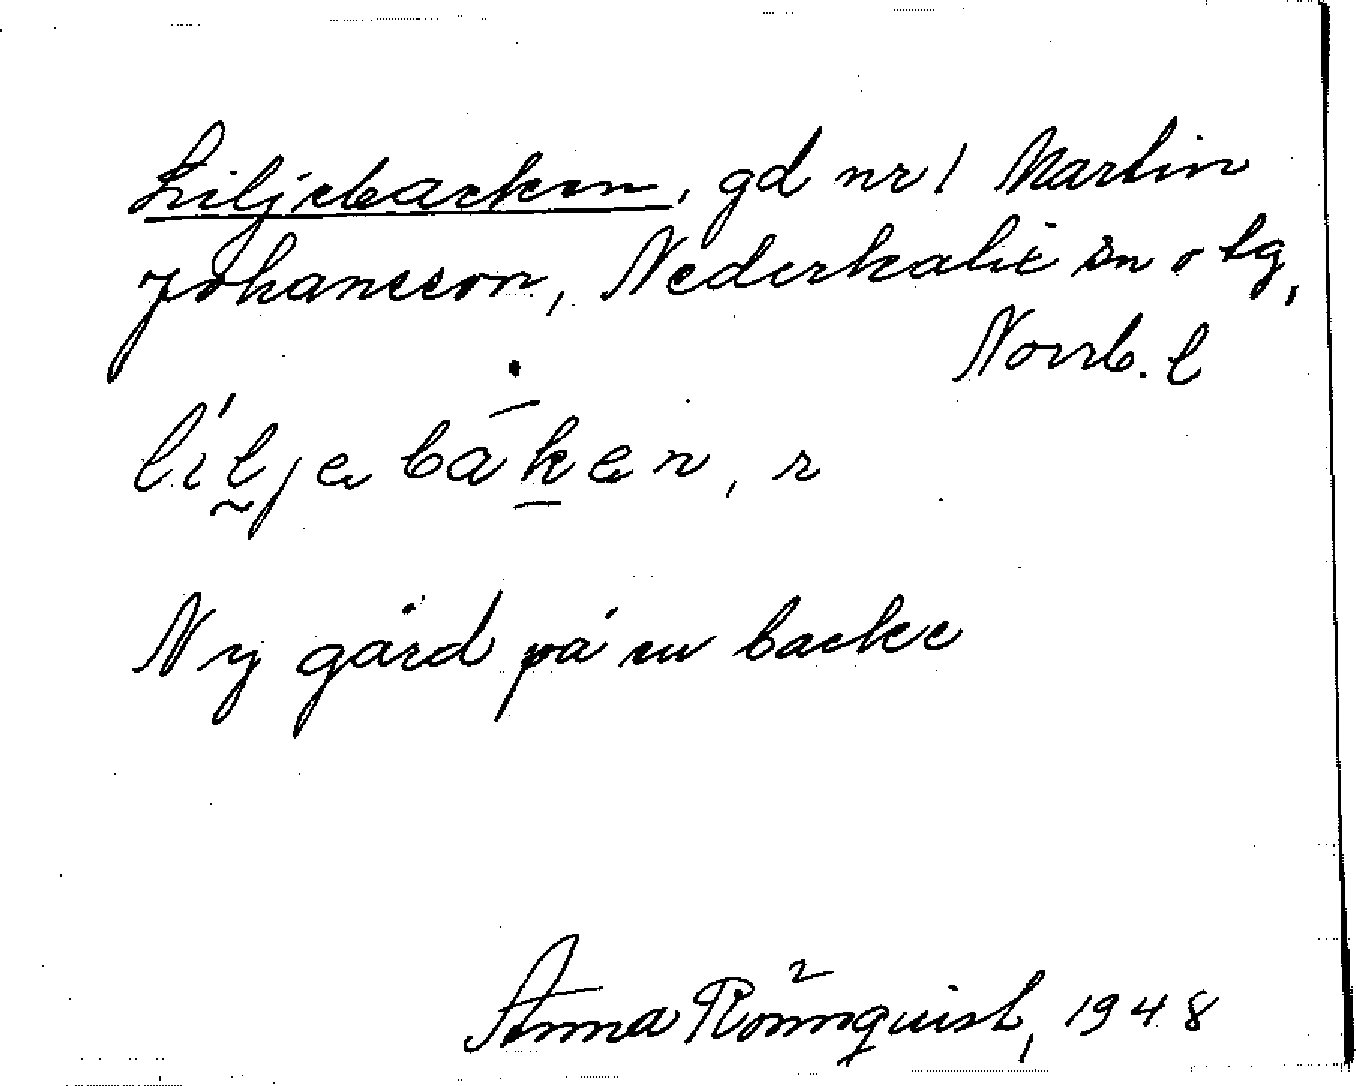 Liljebacken, gd nr 1 Martin
Johansson, Nederkalix sn o tg,
Norrb. l
líljebaken, r
Ny gård på en backe
Anna Rönnquist, 1948